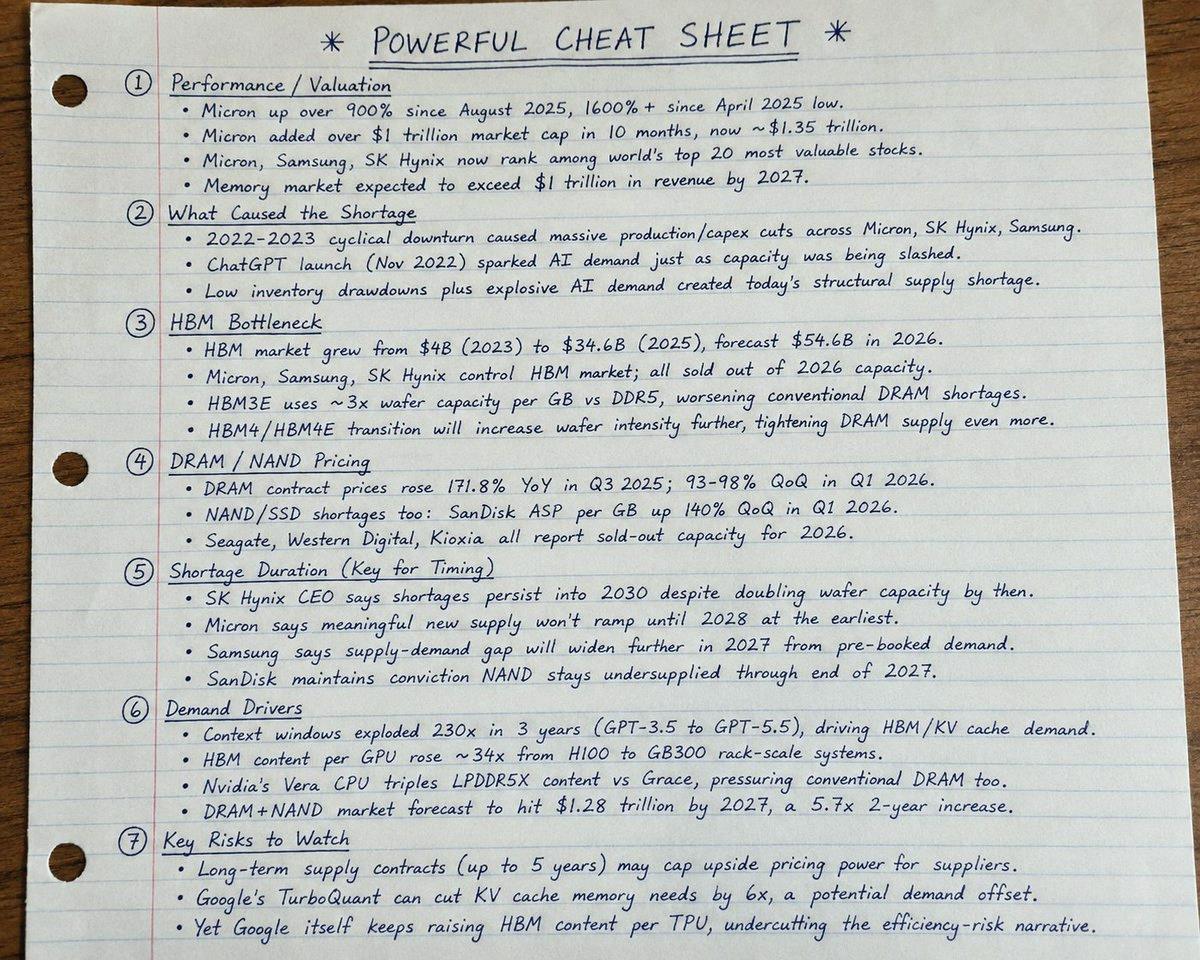 * POWERFUL CHEAT SHEET *
① Performance / Valuation
• Micron up over 900% since August 2025, 1600%+ since April 2025 low.
• Micron added over $1 trillion market cap in 10 months, now ~$1.35 trillion.
• Micron, Samsung, SK Hynix now rank among world's top 20 most valuable stocks.
• Memory market expected to exceed $1 trillion in revenue by 2027.
② What Caused the Shortage
• 2022-2023 cyclical downturn caused massive production/capex cuts across Micron, SK Hynix, Samsung.
• ChatGPT launch (Nov 2022) sparked AI demand just as capacity was being slashed.
• Low inventory drawdowns plus explosive AI demand created today's structural supply shortage.
③ HBM Bottleneck
• HBM market grew from $4B (2023) to $34.6B (2025), forecast $54.6B in 2026.
• Micron, Samsung, SK Hynix control HBM market; all sold out of 2026 capacity.
• HBM3E uses ~3x wafer capacity per GB vs DDR5, worsening conventional DRAM shortages.
• HBM4/HBM4E transition will increase wafer intensity further, tightening DRAM supply even more.
④ DRAM / NAND Pricing
• DRAM contract prices rose 171.8% YoY in Q3 2025; 93-98% QoQ in Q1 2026.
• NAND/SSD shortages too: SanDisk ASP per GB up 140% QoQ in Q1 2026.
• Seagate, Western Digital, Kioxia all report sold-out capacity for 2026.
⑤ Shortage Duration (Key for Timing)
• SK Hynix CEO says shortages persist into 2030 despite doubling wafer capacity by then.
• Micron says meaningful new supply won't ramp until 2028 at the earliest.
• Samsung says supply-demand gap will widen further in 2027 from pre-booked demand.
• SanDisk maintains conviction NAND stays undersupplied through end of 2027.
⑥ Demand Drivers
• Context windows exploded 230x in 3 years (GPT-3.5 to GPT-5.5), driving HBM/KV cache demand.
• HBM content per GPU rose ~34x from H100 to GB300 rack-scale systems.
• Nvidia's Vera CPU triples LPDDR5X content vs Grace, pressuring conventional DRAM too.
• DRAM+NAND market forecast to hit $1.28 trillion by 2027, a 5.7x 2-year increase.
⑦ Key Risks to Watch
• Long-term supply contracts (up to 5 years) may cap upside pricing power for suppliers.
• Google's TurboQuant can cut KV cache memory needs by 6x, a potential demand offset.
• Yet Google itself keeps raising HBM content per TPU, undercutting the efficiency-risk narrative.